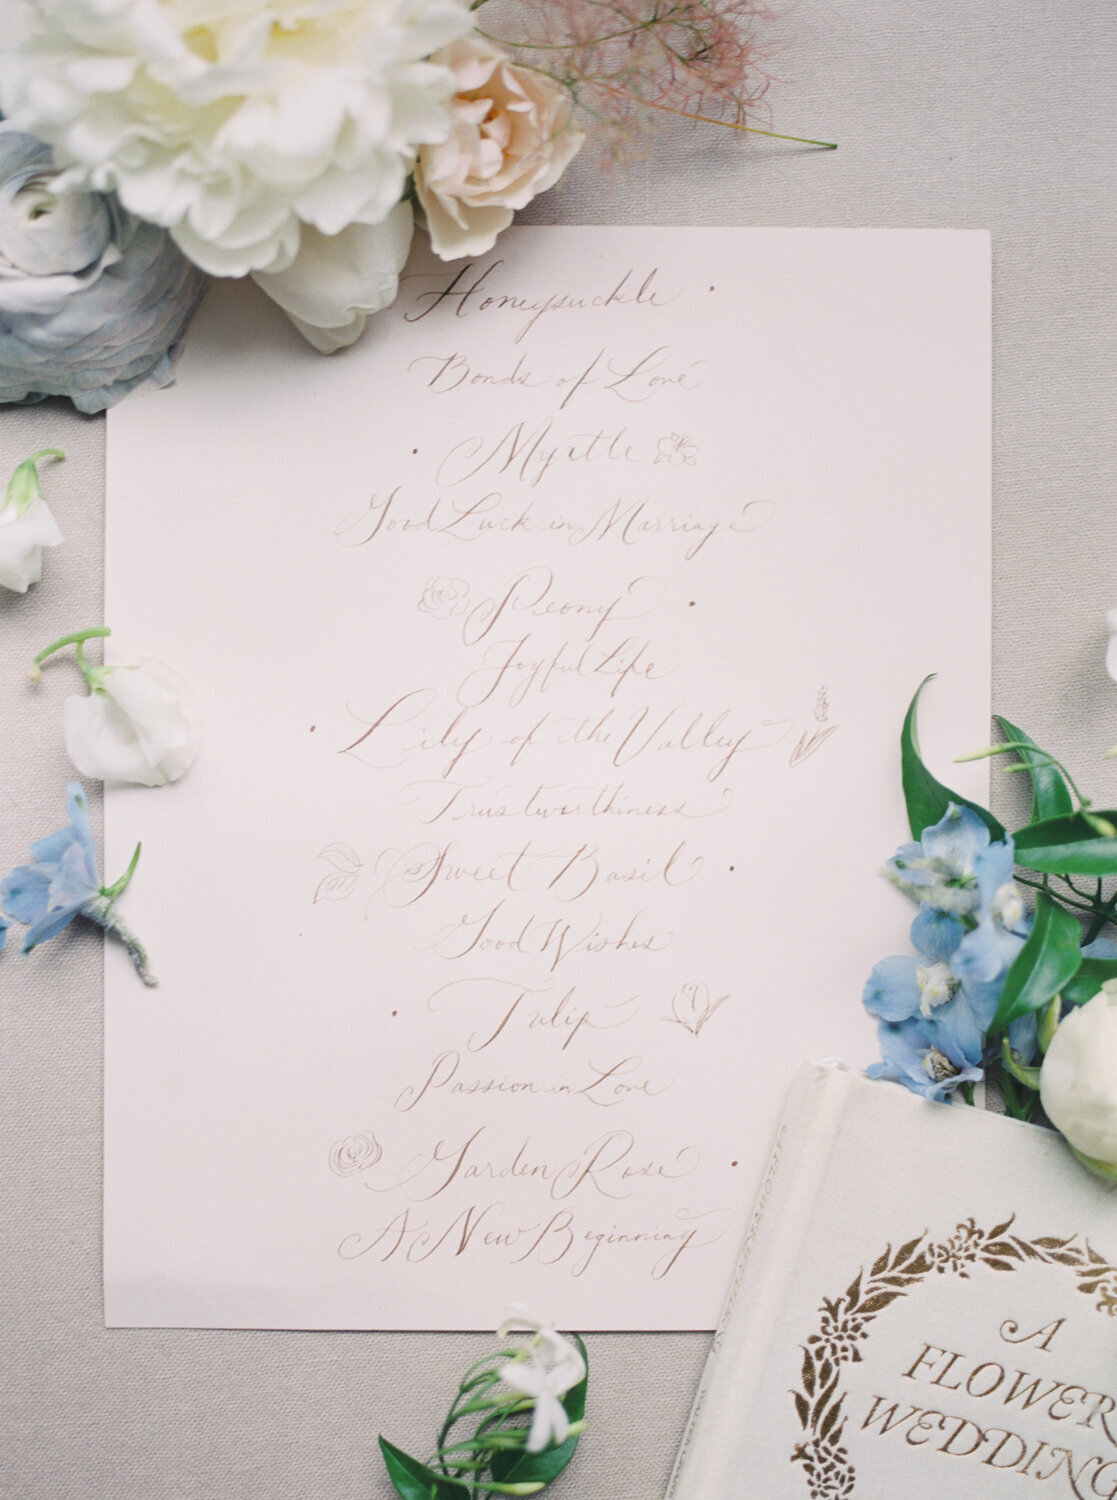 Honeysuckle
Bonds of Love
Myrtle
Good Luck in Marriage
Peony
Joyful Life
Lily of the Valley
Trustworthiness
Sweet Basil
Good Wishes
Tulip
Passion in Love
Garden Rose
A New Beginning
A
FLOWER
WEDDING